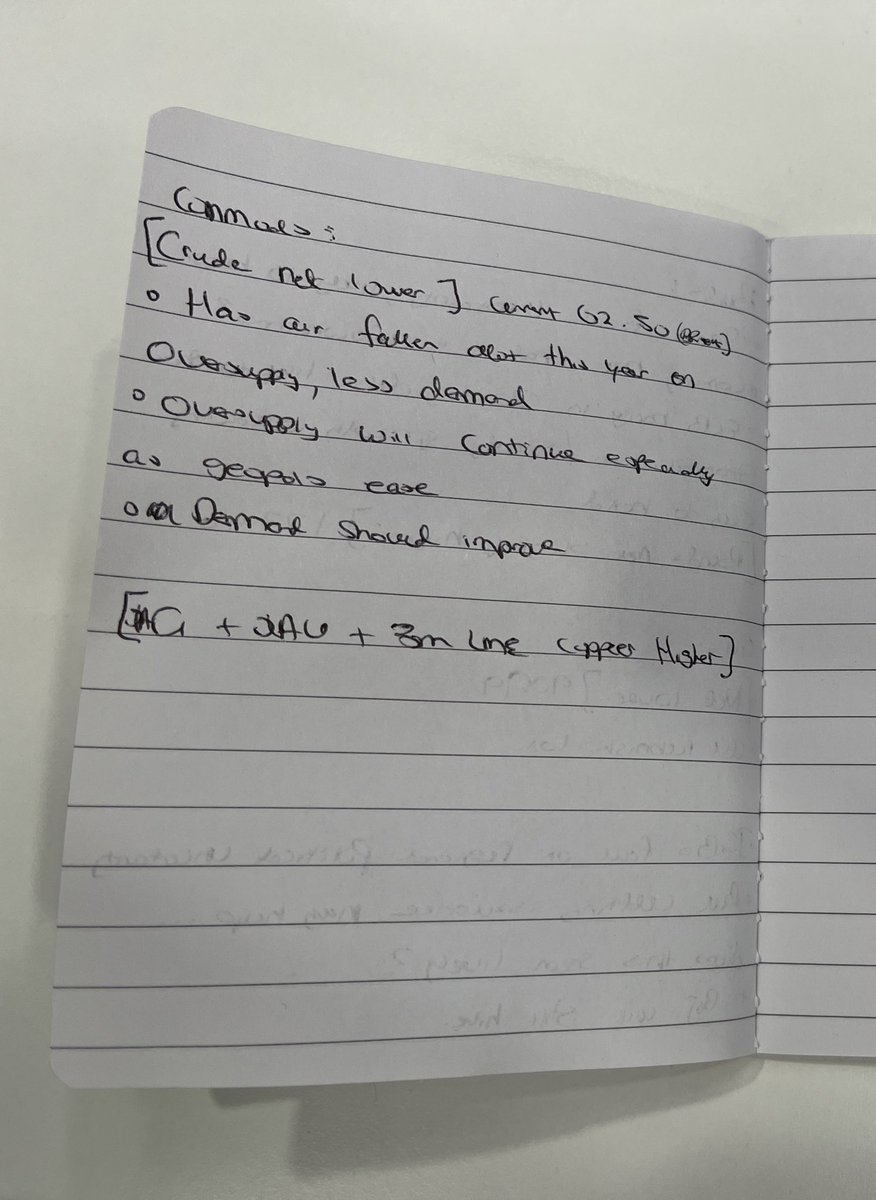 Commods:
[Crude net lower] Current 62.50 (Brent)
• Has fallen alot this year on
Oversupply, less demand
• Oversupply will continue especially
as geopols ease
• Demand should improve
+ XAU + 3m LME Copper Higher]